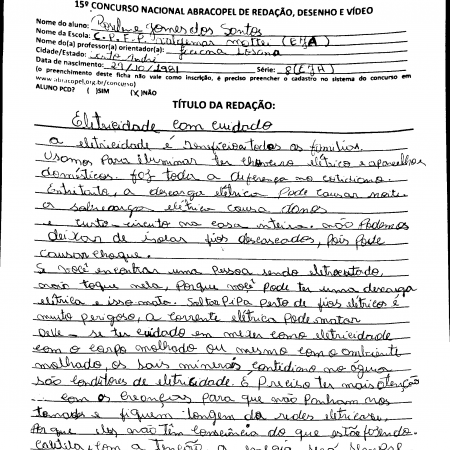 15º CONCURSO NACIONAL ABRACOPEL DE REDAÇÃO, DESENHO E VÍDEO
Nome do aluno: Gomes dos Santos
Nome da Escola: C.P.E.P. Valdemar (EJA)
Nome do(a) professor(a) orientador(a):
Cidade/Estado: Santo André
Data de nascimento: 29/10/1981 Série: 8(EJA)
(o preenchimento deste ficha não vale como inscrição, é preciso preencher o cadastro no sistema do concurso em
www.abracopel.org.br/concurso)
ALUNO PCD? ( )SIM (X)NÃO
TÍTULO DA REDAÇÃO:
Eletricidade com cuidado
a eletricidade é beneficia todas as familias.
Usamos para iluminar ter chuveiro elétrico e aparelhos
domésticos. fez toda a diferença no cotidiano.
Entretanto, a descarga elétrica Pode causar morte
a sobrecarga elétrica causa danos
e curto-circuito na casa inteira. não Podemos
deixar de isolar fios descascados, Pois Pode
causar choque.
Se você encontrar uma Pessoa sendo eletrocutado,
não toque nela, Porque você Pode ter uma descarga
elétrica e isso mata. Soltar PiPa Perto de fios elétricos é
muito perigoso, a corrente elétrica Pode matar
Deve-se ter cuidado em mexer com eletricidade
com o corpo molhado ou mesmo com o ambiente
molhado, os sais minerais contidino no água
são condutores de eletricidade. É Preciso ter mais atenção
com as crianças Para que não Ponham nas
tomadas e fiquem longem da redes elétricas.
Porque eles não têm consciência do que estão fazendo.
com a a energia